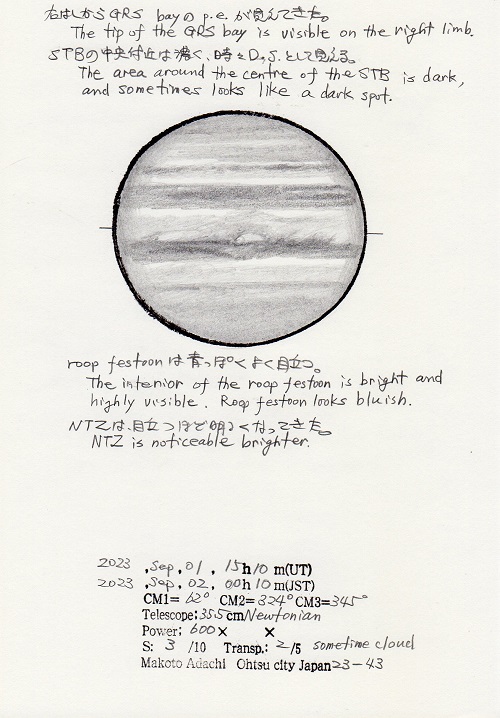 右はしからGRS bayのp.e.が見えてきた。
The tip of the GRS bay is visible on the right limb.
STBの中央付近は濃く、時々D.S.として見える。
The area around the centre of the STB is dark,
and sometimes looks like a dark spot.
roop festoonは青っぽくよく目立つ。
The interior of the roop festoon is bright and
highly visible. Roop festoon looks bluish.
NTZは、目立つほど明るくなってきた。
NTZ is noticeable brighter.
2023 ,Sep,01 , 15h10 m(UT)
2023 ,Sep,02, 00h10m(JST)
CM1= 62° CM2=324° CM3=345°
Telescope:355cmNewtonian
Power: 600× ×
S: 3 /10 Transp.: 2/5 sometime cloud
Makoto Adachi Ohtsu city Japan 23-43